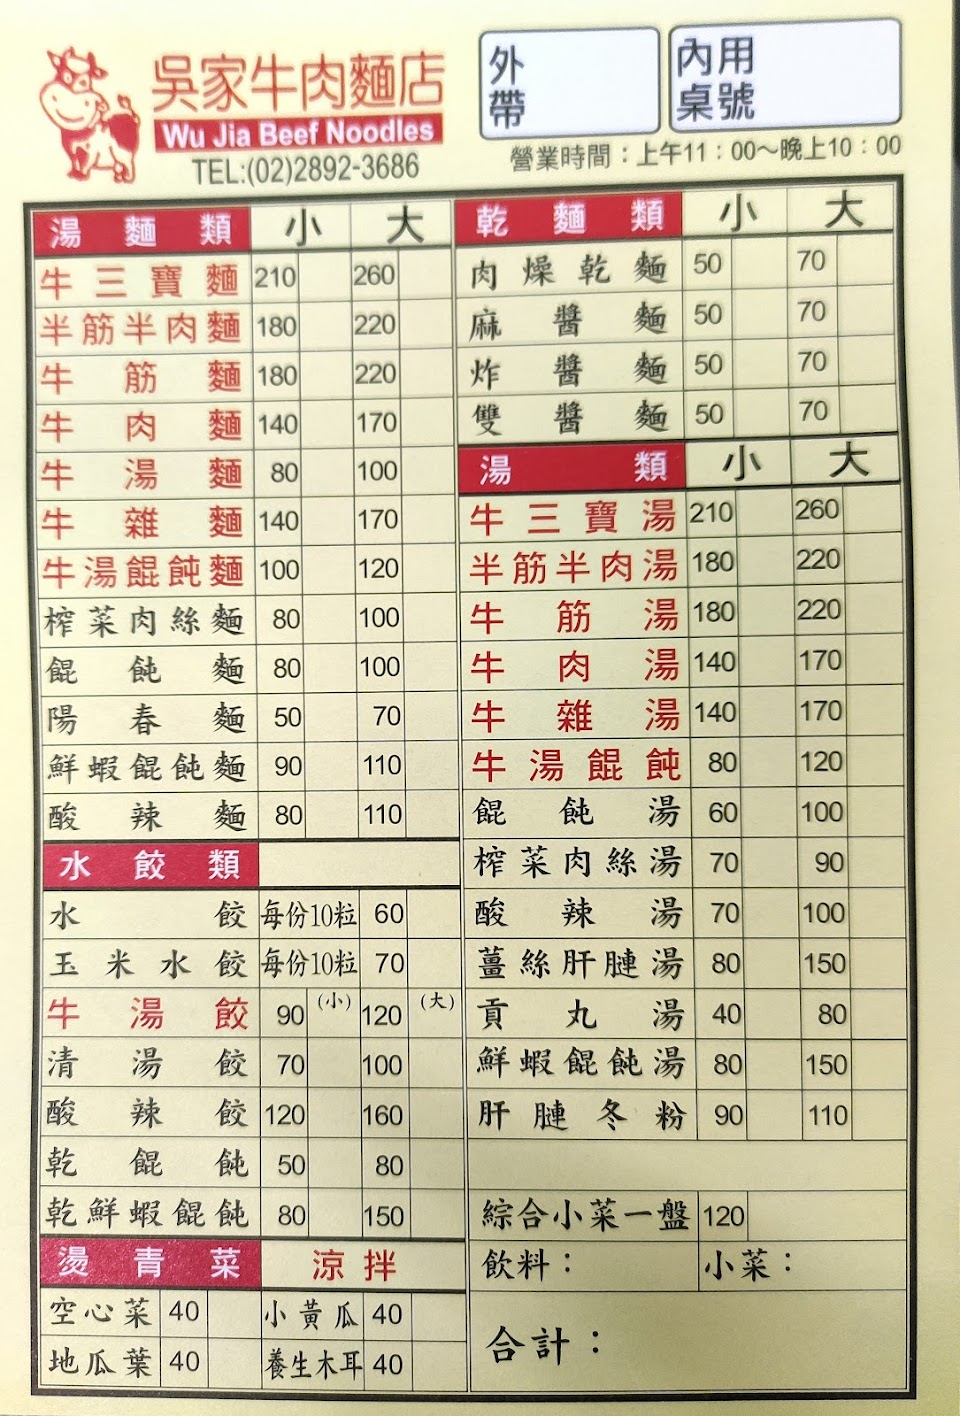 吳家牛肉麵店
Wu Jia Beef Noodles
TEL:(02)2892-3686
外帶
內用桌號
營業時間：上午11：00～晚上10：00
湯麵類 小 大
牛三寶麵 210 260
半筋半肉麵 180 220
牛筋麵 180 220
牛肉麵 140 170
牛湯麵 80 100
牛雜麵 140 170
牛湯餛飩麵 100 120
榨菜肉絲麵 80 100
餛飩麵 80 100
陽春麵 50 70
鮮蝦餛飩麵 90 110
酸辣麵 80 110
水餃類
水餃 每份10粒 60
玉米水餃 每份10粒 70
牛湯餃 90 (小) 120 (大)
清湯餃 70 100
酸辣餃 120 160
乾餛飩 50 80
乾鮮蝦餛飩 80 150
燙青菜 涼拌
空心菜 40 小黃瓜 40
地瓜葉 40 養生木耳 40
乾麵類 小 大
肉燥乾麵 50 70
麻醬麵 50 70
炸醬麵 50 70
雙醬麵 50 70
湯類 小 大
牛三寶湯 210 260
半筋半肉湯 180 220
牛筋湯 180 220
牛肉湯 140 170
牛雜湯 140 170
牛湯餛飩 80 120
餛飩湯 60 100
榨菜肉絲湯 70 90
酸辣湯 70 100
薑絲肝膅湯 80 150
貢丸湯 40 80
鮮蝦餛飩湯 80 150
肝膅冬粉 90 110
綜合小菜一盤 120
飲料： 小菜：
合計：